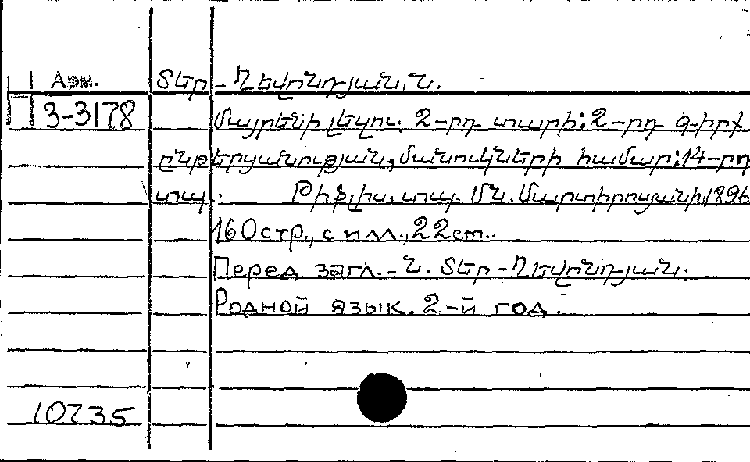 Арм. Տեր-Ղեվոնդյան, Ն.
3-3178 Մայրենի լեզու. 2-րդ տարի: 2-րդ գիրք
ընթերցանության, մանուկների համար: 14-րդ
տպ. Թիֆլիս, տպ. Մն. Մարտիրոսյանի, 1896
160 стр., с илл., 22 cm.
Перед загл. - Ն. Տեր-Ղեվոնդյան.
Родной язык. 2-й год.
10735